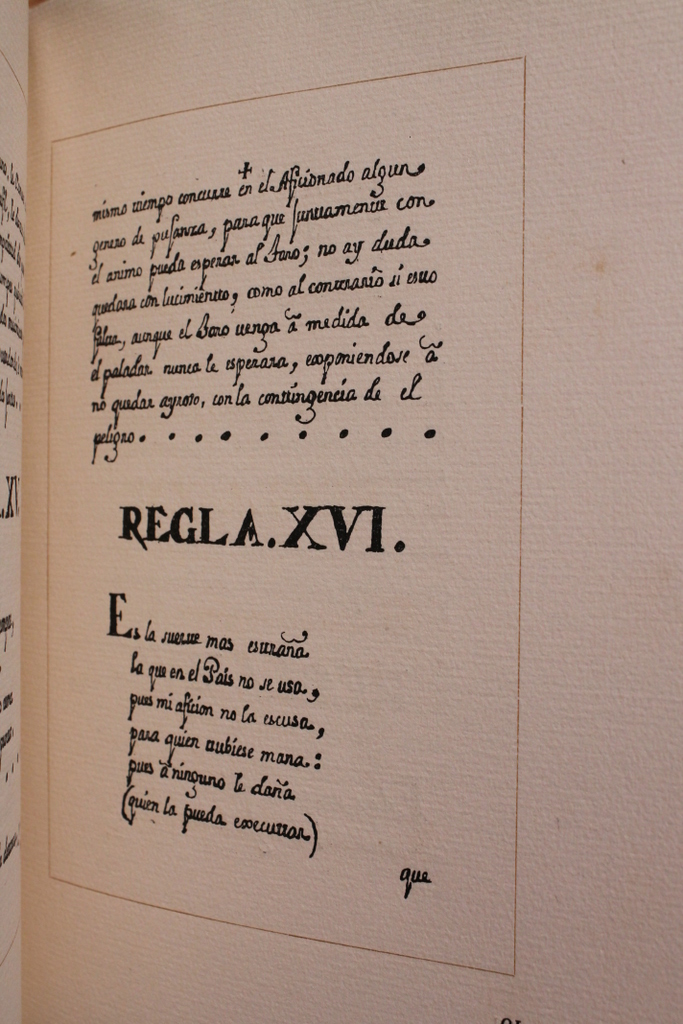 ✝
mismo tiempo concurre en el Aficionado algun
genero de pujanza, para que juntamente con
el animo pueda esperar al Toro; no ay duda
quedara con lucimiento, como al contrario si esto
faltar, aunque el Toro venga â medida de
el paladar nunca le esperara, exponiendose â
no quedar ayroso, con la contingencia de el
peligro . . . . . . . . . .
REGLA. XVI.
Es la suerte mas estraña
la que en el Pais no se usa,
pues mi aficion no la escusa,
para quien tubiese mana:
pues â ninguno le daña
(quien la pueda executar)
que